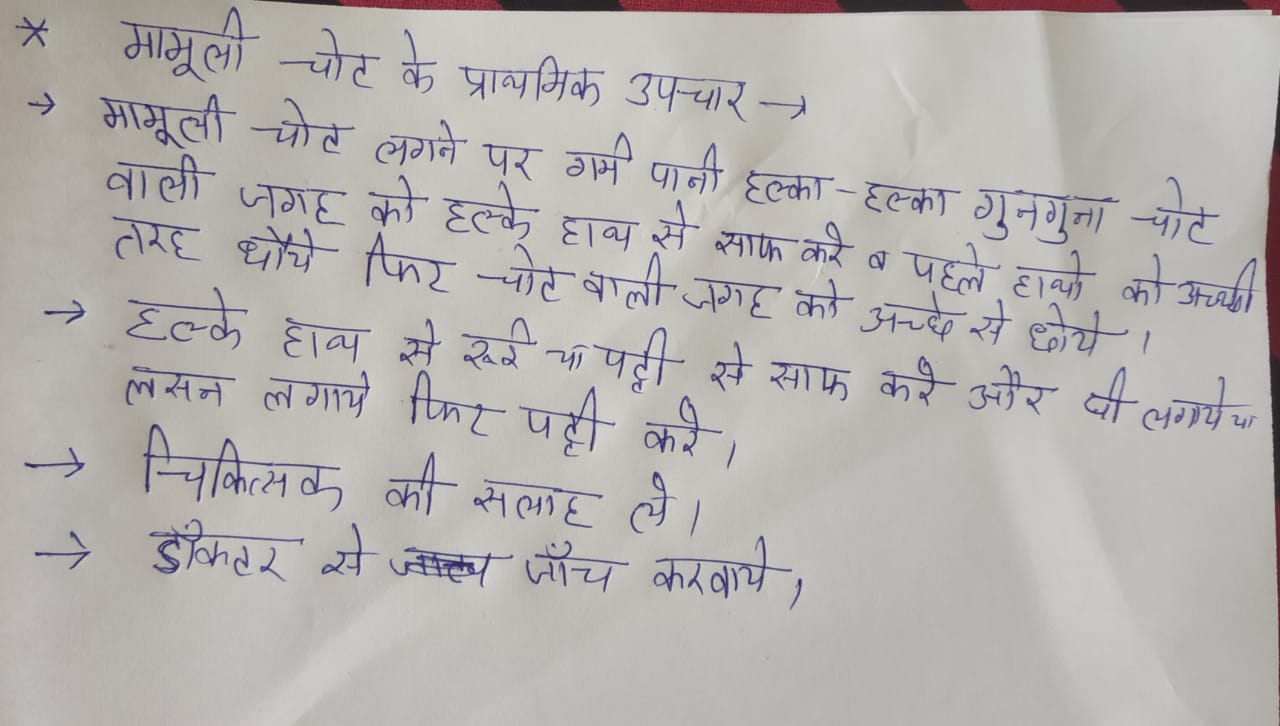 * मामूली चोट के प्राथमिक उपचार →
→ मामूली चोट लगने पर गर्म पानी हल्का-हल्का गुनगुना चोट
वाली जगह को हल्के हाथ से साफ करे व पहले हाथो को अच्छी
तरह धौये फिर चोट वाली जगह को अच्छे से धोये।
→ हल्के हाथ से रूई या पट्टी से साफ करे और घी लगाये या
लसन लगाये फिर पट्टी करे।
→ चिकित्सक की सलाह ले।
→ डॉक्टर से जाँच करवाये,